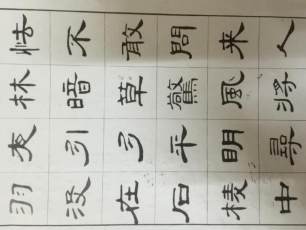 怯不敢問来人
林暗草驚風将
夜引弓平明尋
羽没在石棱中